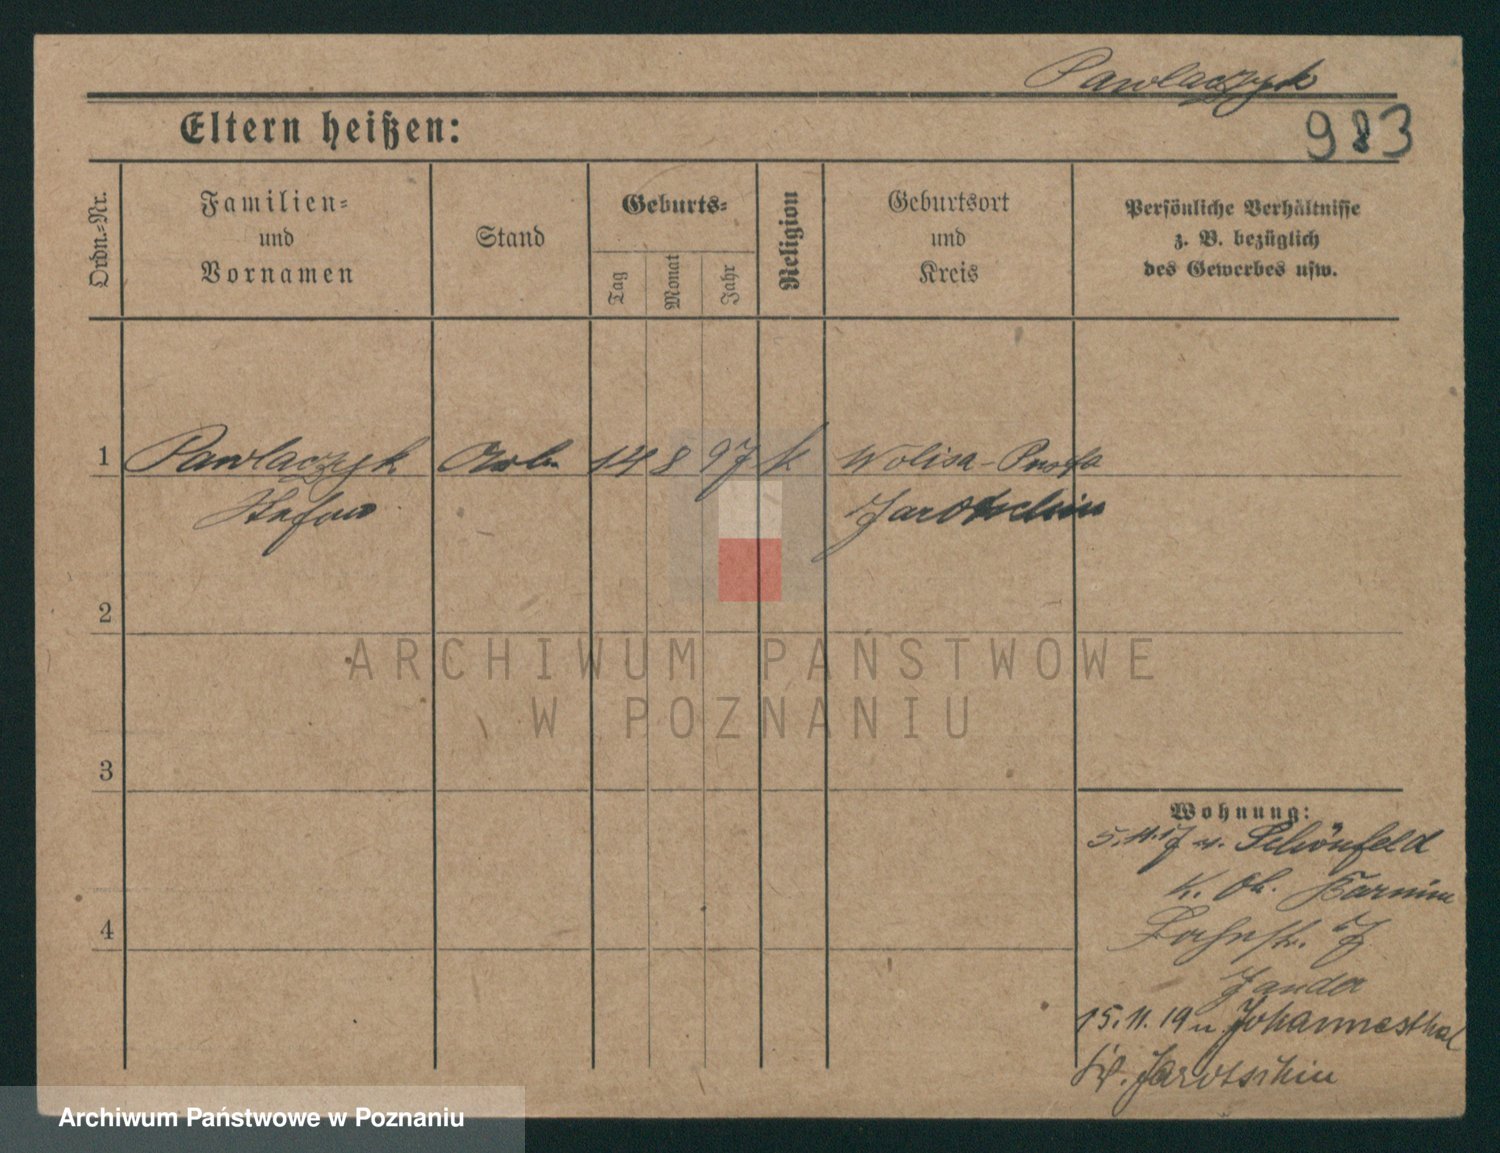 Pawlaczyk
Eltern heißen:
983
Ordn.-Nr.
Familien-
und
Vornamen
Stand
Geburts-
Tag
Monat
Jahr
Religion
Geburtsort
und
Kreis
Persönliche Verhältnisse
z. B. bezüglich
des Gewerbes usw.
1 Pawlaczyk Arb. 14 8 97 k Wolica-Pusta
Stefan Jarotschin
2
ARCHIWUM PAŃSTWOWE
W POZNANIU
3
Wohnung:
5.11.17 n. Schönfeld
K. Ob. Barnim
4
Janda
15.11.19 n Johannesthal
Kr. Jarotschin
Archiwum Państwowe w Poznaniu